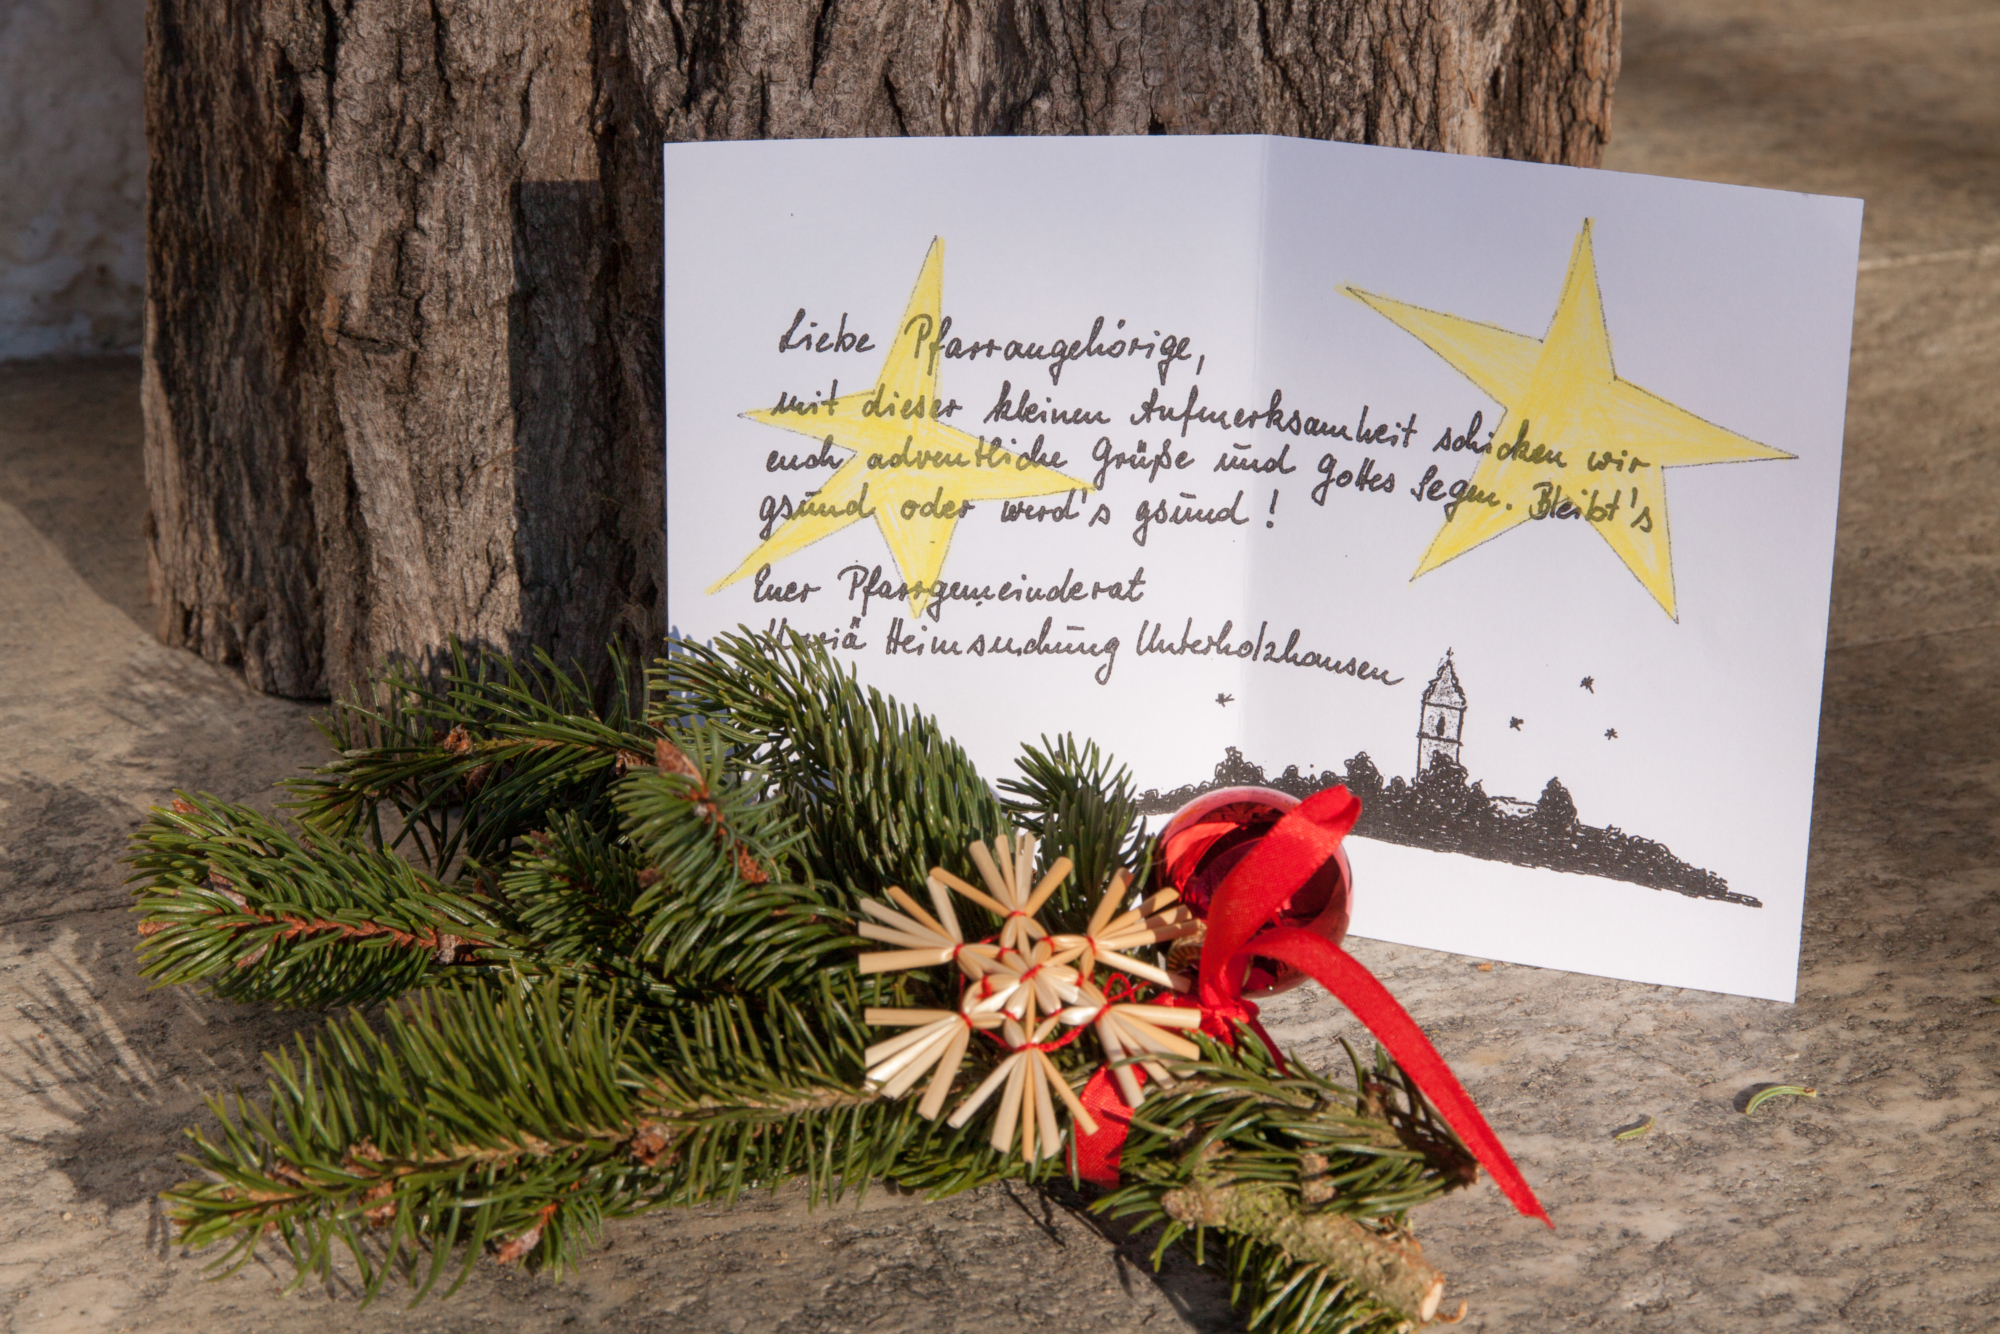 Liebe Pfarrangehörige,
mit dieser kleinen Aufmerksamkeit schicken wir
euch adventliche Grüße und Gottes Segen. Bleibt's
gsund oder werd's gsund!
Euer Pfarrgemeinderat
Mariä Heimsuchung Unterholzhausen